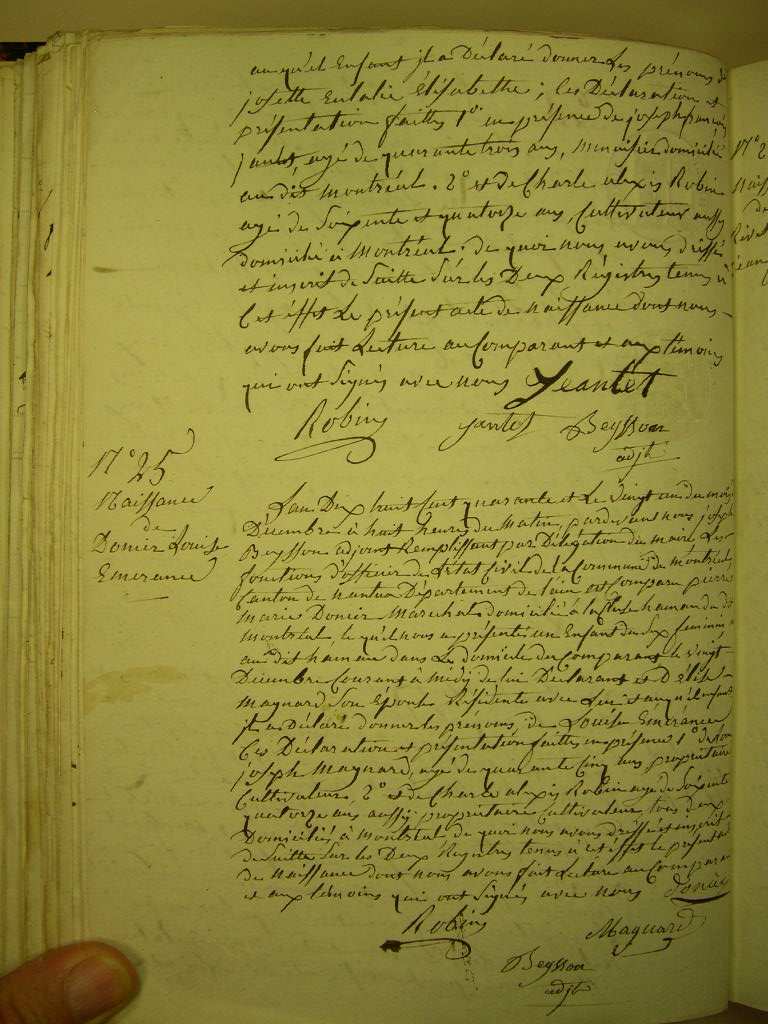 auquel Enfant jl a Déclaré donner les prénoms de
josette Eulalie Elisabethe; Ces Déclaration et
présentation faittes 1° en présence de joseph françois
jantet agé de quarante trois ans, menuisier domicilié
au dit Montréal. 2° et de Charle alexis Robin
agé de Soixente et quatorze ans, Cultivateur aussy
domicilié à Montréal. de quoi nous avons dréssé
et inscrit de Suitte Sur les Deux Régistres tenus à
Cet éffet Le présent acte de Naissance dont nous
avons fait Lecture au Comparant et aux témoins
qui ont Signés avec nous Jeantet
Robin jantet Beysson
adjt
N° 25
Naissance
de
Donier Louise
Emerance
Lan Dix huit Cent quarante et Le vingt un du mois
Décembre à huit heures du Matin, pardevant nous joseph
Beysson adjoint Remplissant par Délégation du maire Les
fonctions d'officier de L'état Civil de la Commune de montréal
Canton de nantua Département de l'ain est Comparu pierre
Marie Donier Marechal domicilié à la hameau du dit
Montréal, le quel nous a présenté un Enfant du Sex feminin,
au dit hameau dans Le domicile du Comparant le vingt
Décembre Courant à midy de lui Déclarant et D
Magnard Son Epouse Résidente avec Lui et auquel enfant
jl a Déclaré donner les prenoms de Louise Emérance
Ces Déclaration et présentation faittes en présence 1° de
joseph Magnard, agé de quarante Cinq ans propriétaire
Cultivateur, 2° et de Charle alexis Robin agé de Soixente
quatorze ans aussy propriétaire Cultivateur, tous deux
Domiciliés à Montréal de quoi nous avons dréssé et inscrit
de Suitte Sur les Deux Régistres tenus à cet éffet le présent acte
de Naissance dont nous avons fait Lecture au Comparant
et aux témoins qui ont Signés avec nous Donier
Robin Magnard
Beysson
adjt
N° 2
de